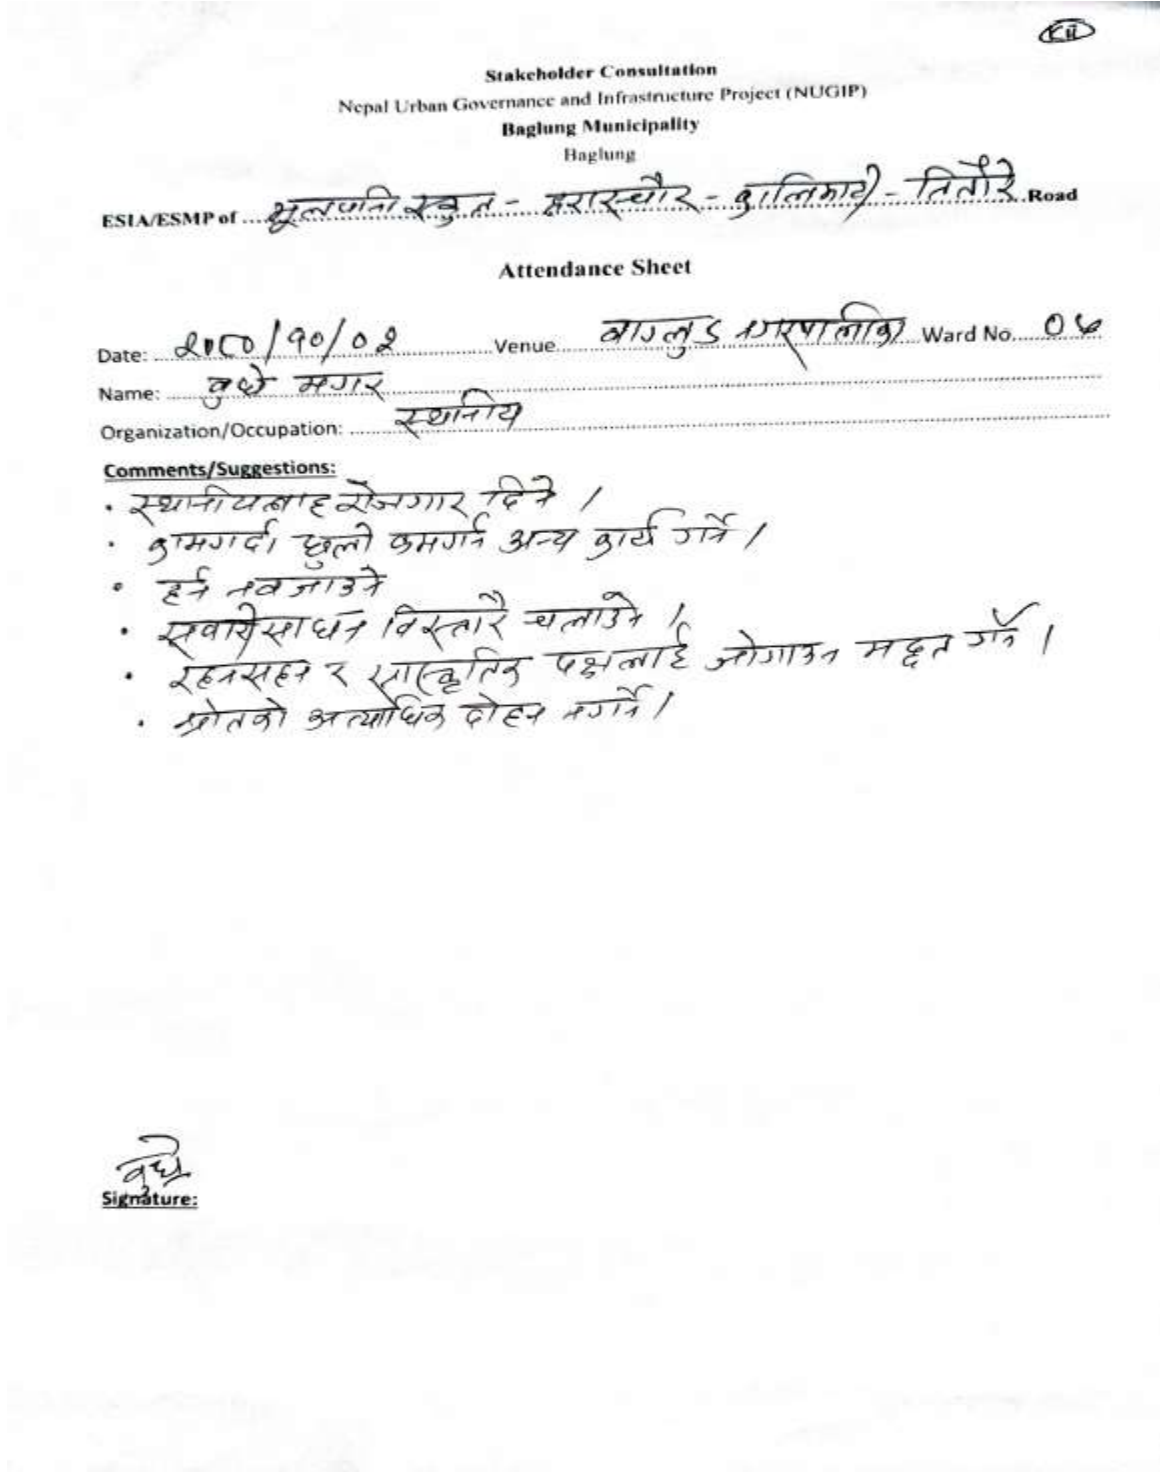 KII
Stakeholder Consultation
Nepal Urban Governance and Infrastructure Project (NUGIP)
Baglung Municipality
Baglung
ESIA/ESMP of .... स्कुल - - - तितौरे ..Road
Attendance Sheet
Date: २०८०/१०/०२ Venue बागलुङ नगरपालिका Ward No. ०४
Name: बुद्धे मगर
Organization/Occupation: स्थानीय
Comments/Suggestions:
• स्थानीयलाइ रोजगार दिने ।
• कामगर्दा धुलो कमगर्न अन्य कार्य गर्ने ।
• हर्न नबजाउने
• सवारीसाधन विस्तारै चलाउने ।
• रहनसहन र सांस्कृतिक पक्षलाई जोगाउन मद्दत गर्ने ।
• स्रोतको अत्याधिक दोहन नगर्ने ।
बुद्धे
Signature: